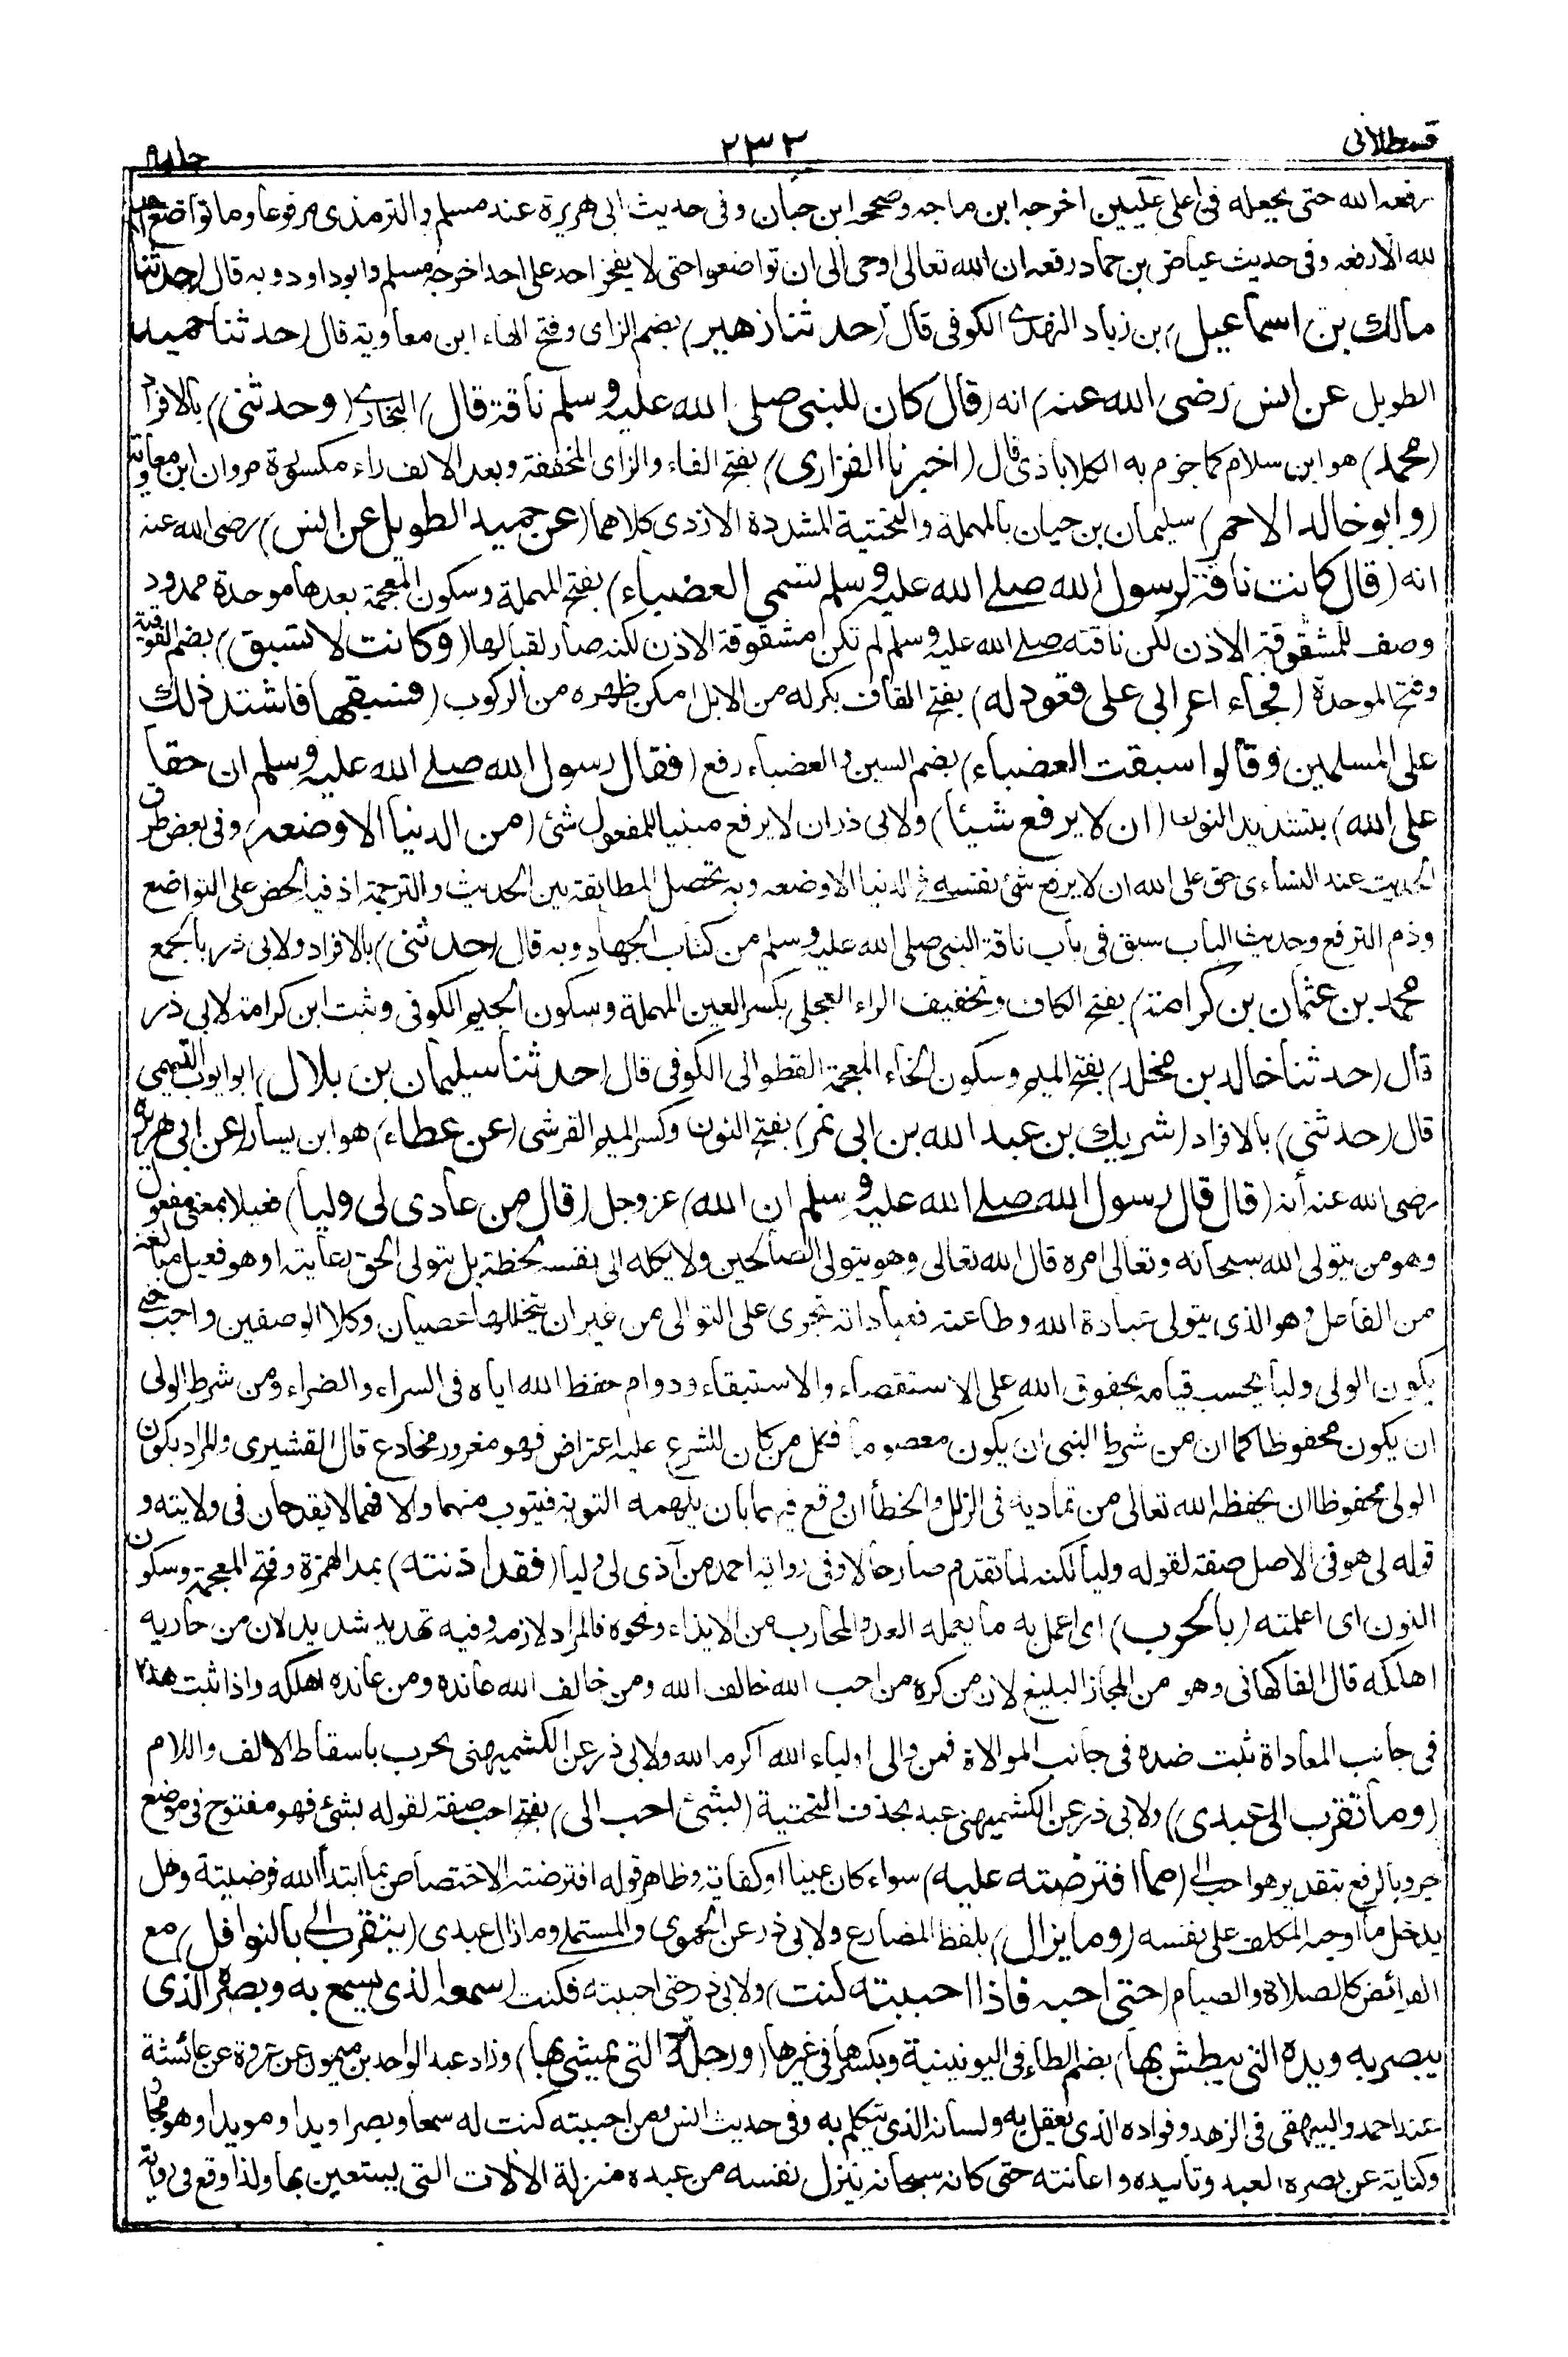 قسطلانی
٢٣٢
جلد ٩
رفعه الله حتی یجعله فی اعلی علیین اخرجه ابن ماجه وصححه ابن حبان وفی حدیث ابی هریرة عند مسلم والترمذی مرفوعا وما تواضع احد
لله الا رفعه وفی حدیث عیاض بن حماد رفعه ان الله تعالی اوحی الی ان تواضعوا حتی لا یفخر احد علی احد اخرجه مسلم وابوداود وبه قال (حدثنا
مالك بن اسماعیل) بن زیاد النهدی الکوفی قال (حدثنا زهیر) بضم الزای وفتح الهاء ابن معاویة قال (حدثنا حمید)
الطویل عن انس رضی الله عنه) انه (قال کان للنبی صلی الله علیه وسلم ناقة قال) البخاری (وحدثنی) بالافراد
(محمد) هو ابن سلام کما جزم به الکلاباذی قال (اخبرنا الفزاری) بفتح الفاء والزای المخففة وبعد الالف راء مکسورة مروان ابن معاویة
(وابو خالد الاحمر) سلیمان بن حیان بالمهملة والتحتیة المشددة الازدی کلاهما (عن حمید الطویل عن انس) رضی الله عنه
انه (قال کانت ناقة لرسول الله صلی الله علیه وسلم تسمی العضباء) بفتح المهملة وسکون المعجمة بعدها موحدة ممدود
وصف للمشقوقة الاذن لکن ناقته صلی الله علیه وسلم لم تکن مشقوقة الاذن لکنه صار لقبا لها (وکانت لا تسبق) بضم الفوقیة
وفتح الموحدة (فجاء اعرابی علی قعود له) بفتح القاف بکر له من الابل امکن ظهره من الرکوب (فسبقها فاشتد ذلك
علی المسلمین وقالوا سبقت العضباء) بضم السین والعضباء رفع (فقال رسول الله صلی الله علیه وسلم ان حقا
علی الله) بتشدید النون (ان لا یرفع شیئا) ولابی ذر ان لا یرفع مبنیا للمفعول شئ (من الدنیا الا وضعه) وفی بعض طرق
الحدیث عند النسائی حق علی الله ان لا یرفع شئ نفسه فی الدنیا الا وضعه وبه تحصل المطابقة بین الحدیث والترجمة اذ فیه الحض علی التواضع
وذم الترفع وحدیث الباب سبق فی باب ناقة النبی صلی الله علیه وسلم من کتاب الجهاد وبه قال (حدثنی) بالافراد ولابی ذر بالجمع
محمد بن عثمان بن کرامة) بفتح الکاف وتخفیف الراء العجلی بکسر العین المهملة وسکون الجیم الکوفی وثبت ابن کرامة لابی ذر
قال (حدثنا خالد بن مخلد) بفتح المیم وسکون الخاء المعجمة القطوانی الکوفی قال (حدثنا سلیمان بن بلال) ابو ایوب التیمی
قال (حدثنی) بالافراد (شریك بن عبد الله بن ابی نمر) بفتح النون وکسر المیم القرشی (عن عطاء) هو ابن یسار (عن ابی هریرة)
رضی الله عنه أنه (قال قال رسول الله صلی الله علیه وسلم ان الله) عز وجل (قال من عادی لی ولیا) فعیلا بمعنی مفعول
وهو من یتولی الله سبحانه وتعالی امره قال الله تعالی وهو یتولی الصالحین ولا یکله الی نفسه لحظة بل یتولی الحق رعایته او هو فعیل مبالغة
من الفاعل وهو الذی یتولی عبادة الله وطاعته فعباداته تجری علی التوالی من غیر ان یتخللها عصیان وکلا الوصفین واجب حتی
یکون الولی ولیا بحسب قیامه بحقوق الله علی الاستقصاء والاستیفاء ودوام حفظ الله ایاه فی السراء والضراء ومن شرط الولی
ان یکون محفوظا کما ان من شرط النبی ان یکون معصوما فکل من کان للشرع علیه اعتراض فهو مغرور مخادع قال القشیری والمراد بکون
الولی محفوظا ان یحفظه الله تعالی من تمادیه فی الزلل والخطأ ان وقع فیهما بان یلهمه التوبة فیتوب منهما والا فهما لا یقدحان فی ولایته و
قوله لی هو فی الاصل صفة لقوله ولیا لکنه لما تقدم صار حالا وفی روایة احمد من آذی لی ولیا (فقد اذنته) بمد الهمزة وفتح المعجمة وسکون
النون ای اعلمته (بالحرب) ای اعمل به ما یعمله العدو المحارب من الایذاء ونحوه فالمراد لازمه وفیه تهدید شدید لان من حاربه
اهلکه قال الفاکهانی وهو من المجاز البلیغ لان من کره من احب الله خالف الله ومن خالف الله عانده ومن عانده اهلکه واذا ثبت هذا
فی جانب المعاداة ثبت ضده فی جانب الموالاة فمن والی اولیاء الله اکرمه الله ولابی ذر عن الکشمیهنی بحرب باسقاط الالف واللام
(وما تقرب الی عبدی) ولابی ذر عن الکشمیهنی عبد بحذف التحتیة (بشئ احب الی) بفتح احب صفة لقوله بشئ فهو مفتوح فی موضع
جر وبالرفع بتقدیر هو احب الی (مما افترضته علیه) سواء کان عینا او کفایة وظاهر قوله افترضته الاختصاص بما ابتدأ الله فرضیته وهل
یدخل ما اوجبه المکلف علی نفسه (وما یزال) بلفظ المضارع ولابی ذر عن الحموی والمستملی وما زال عبدی (یتقرب الی بالنوافل) مع
الفرائض کالصلاة والصیام (حتی احبه فاذا احببته کنت) ولابی ذر حتی احببته فکنت (سمعه الذی یسمع به وبصره الذی
یبصر به ویده التی یبطش بها) بضم الطاء فی الیونینیة وبکسرها فی غیرها (ورجله التی یمشی بها) وزاد عبد الواحد بن میمون عن عروة عن عائشة
عند احمد والبیهقی فی الزهد وفواده الذی یعقل به ولسانه الذی یتکلم به وفی حدیث انس ومن احببته کنت له سمعا وبصرا ویدا ومویدا وهو مجاز
وکنایة عن نصره العبد وتأییده واعانته حتی کانه سبحانه ینزل نفسه من عبده منزلة الالات التی یستعین بها ولذا وقع فی روایة